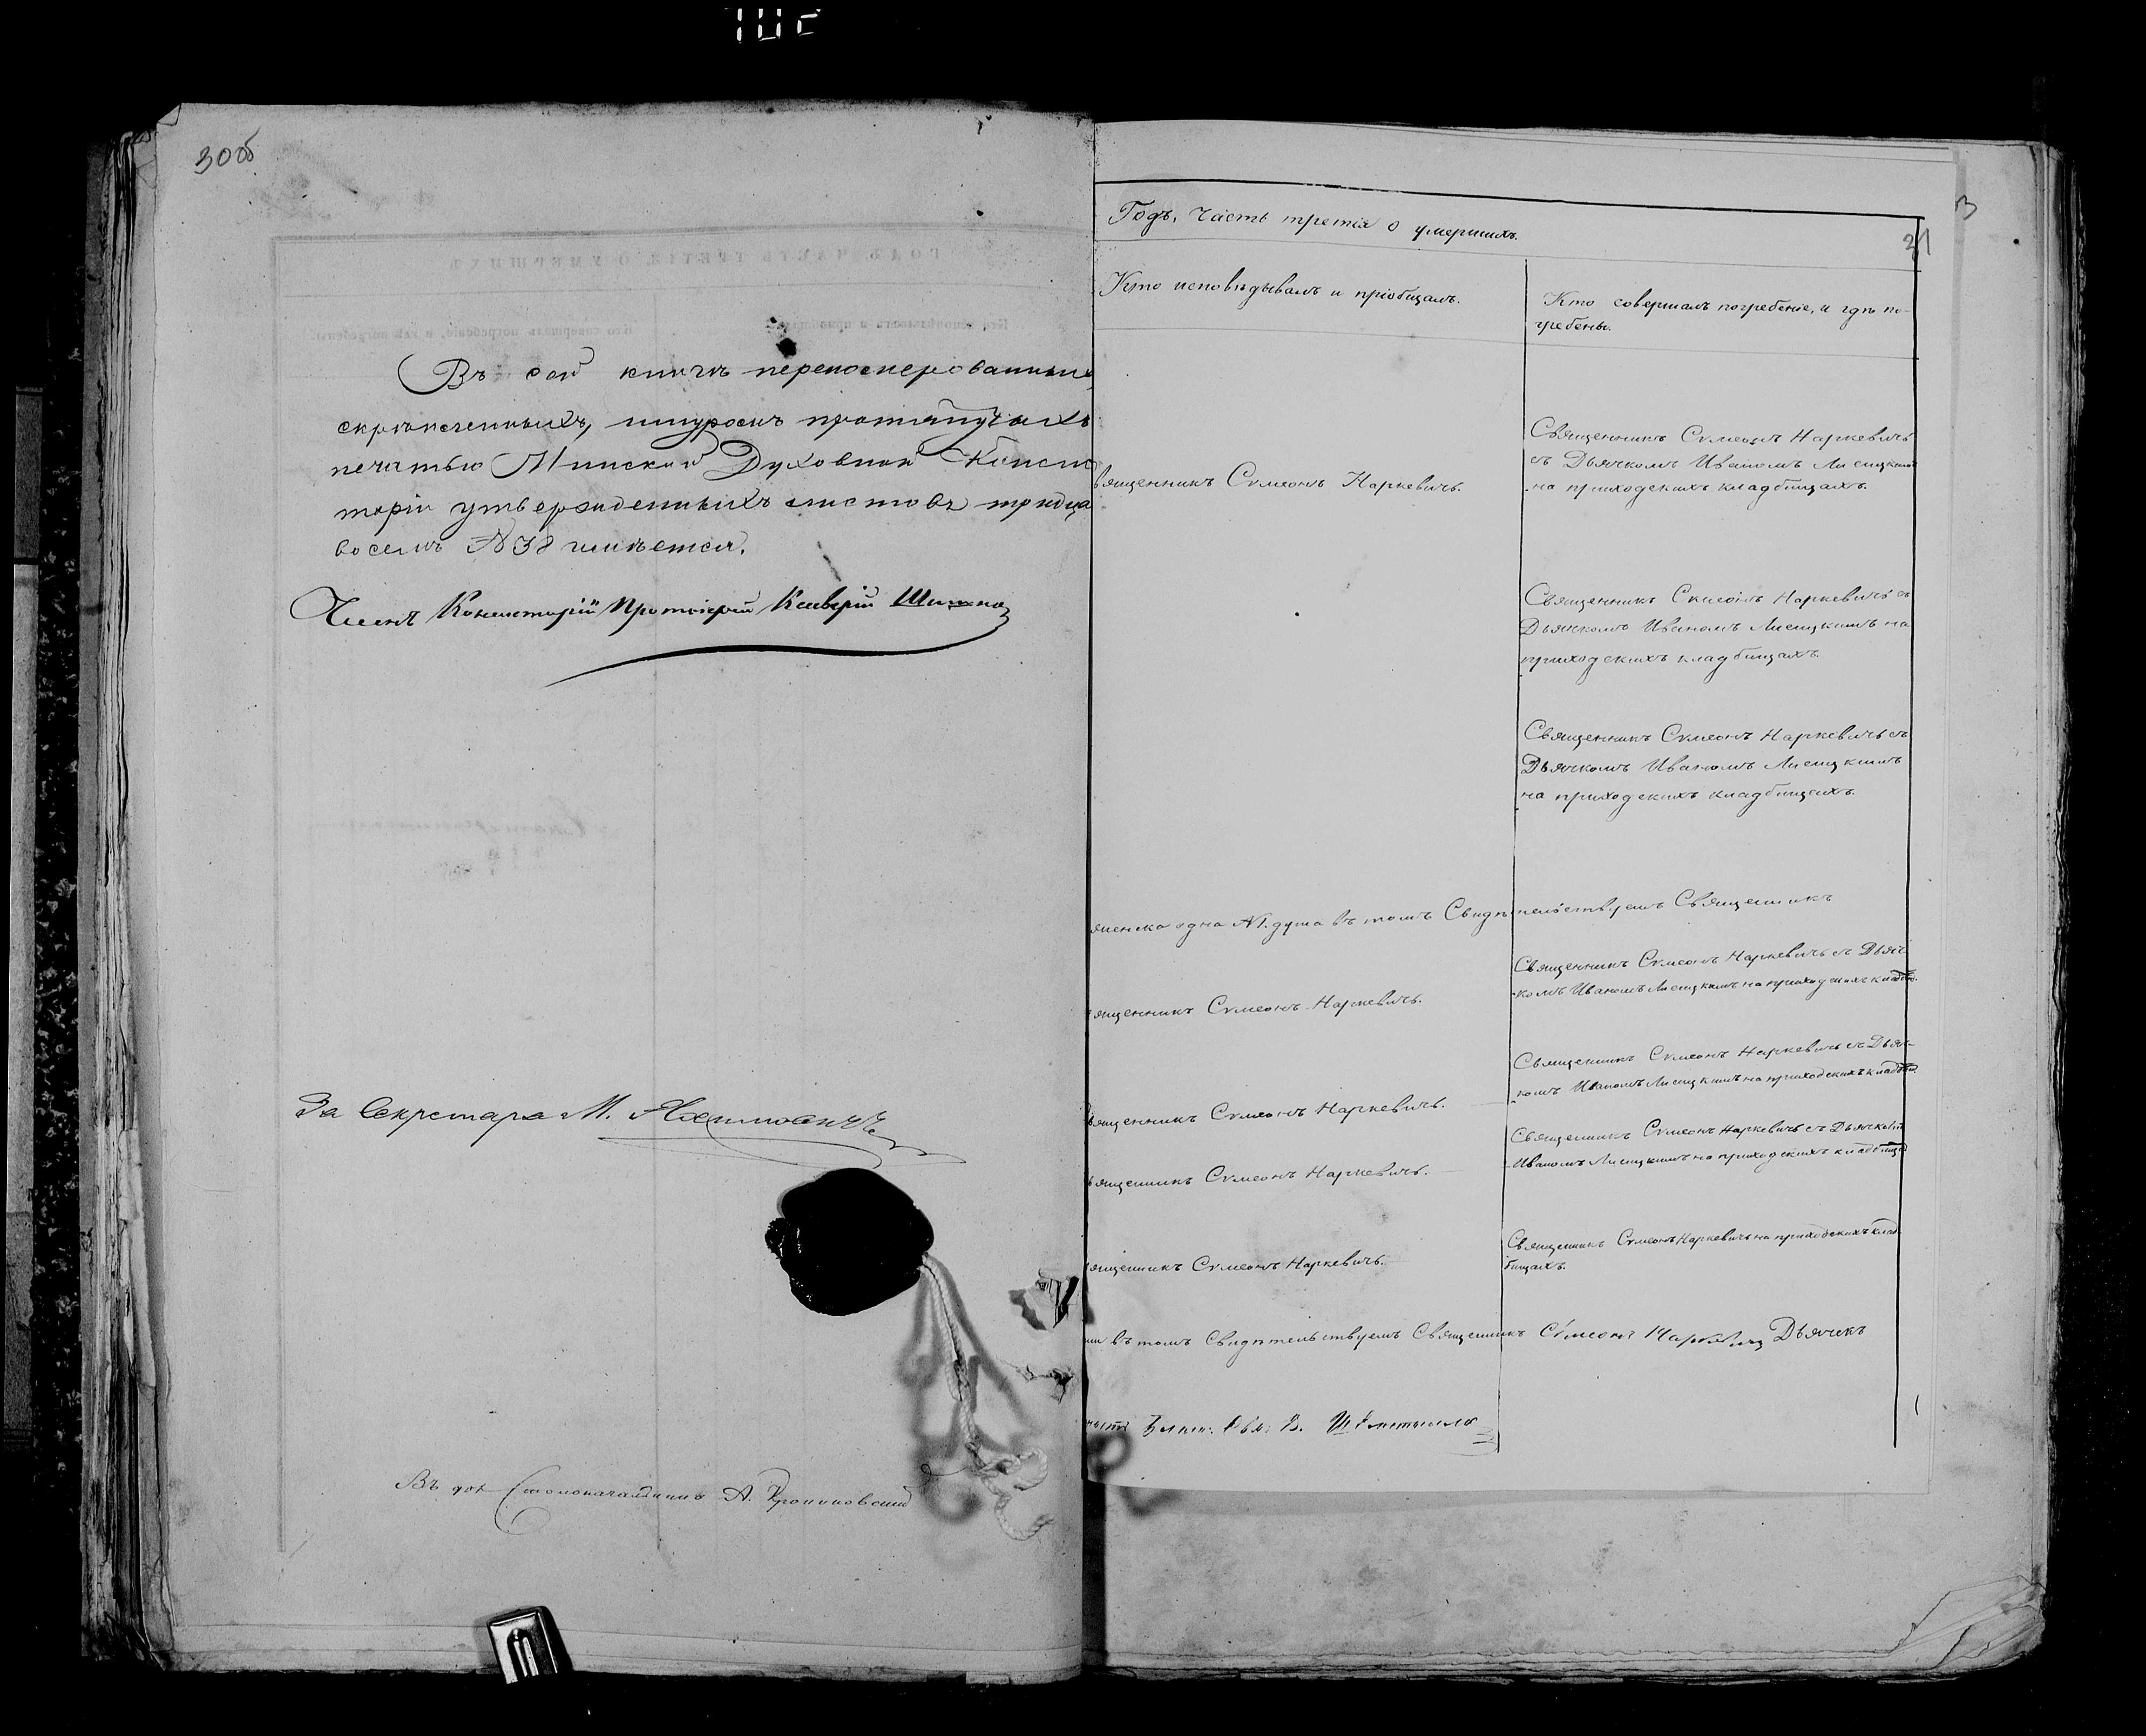 30об
Въ сей книгѣ переномерованныхъ
скрѣпленныхъ, шнуромъ протянутыхъ
печатью Минской Духовной Консис
торіи утвержденныхъ листовъ тридца
восемь №38 имѣется.
Членъ Консисторіи Протоіерей
За Секретаря М.
Въ дол Столоначальника А.
Годъ, Часть третія о умершихъ.
31
Кто исповѣдывалъ и пріобщалъ.
Кто совершалъ погребеніе, и гдѣ по-
гребены.
вященникъ Сѵмеонъ Наркевичъ.
Священникъ Сѵмеонъ Наркевичъ
съ Дьячкомъ Иваномъ Лисицкимъ
на приходскихъ кладбищахъ.
Священникъ Сѵмеонъ Наркевичъ съ
Дьячкомъ Иваномъ Лисицкимъ на
приходскихъ кладбищахъ.
Священникъ Сѵмеонъ Наркевичъ съ
Дьячкомъ Иваномъ Лисицкимъ
на приходскихъ кладбищахъ.
одна №1. душа въ томъ Свидѣтельствуетъ Священникъ
Священникъ Сѵмеонъ Наркевичъ съ Дьяч
комъ Иваномъ Лисицкимъ на приходскихъ кладби.
ященникъ Сѵмеонъ Наркевичъ.
Священникъ Сѵмеонъ Наркевичъ съ Дьяч-
комъ Иваномъ Лисицкимъ на приходскихъ кладби.
вященникъ Сѵмеонъ Наркевичъ.
Священникъ Сѵмеонъ Наркевичъ съ Дьячкомъ
Иваномъ Лисицкимъ на приходскихъ кладбища
вященникъ Сѵмеонъ Наркевичъ.
Священникъ Сѵмеонъ Наркевичъ на приходскихъ клад-
бищахъ.
ященникъ Сѵмеонъ Наркевичъ.
въ томъ Свидѣтельствуетъ Священникъ Сѵмеонъ Наркевичъ Дьячекъ